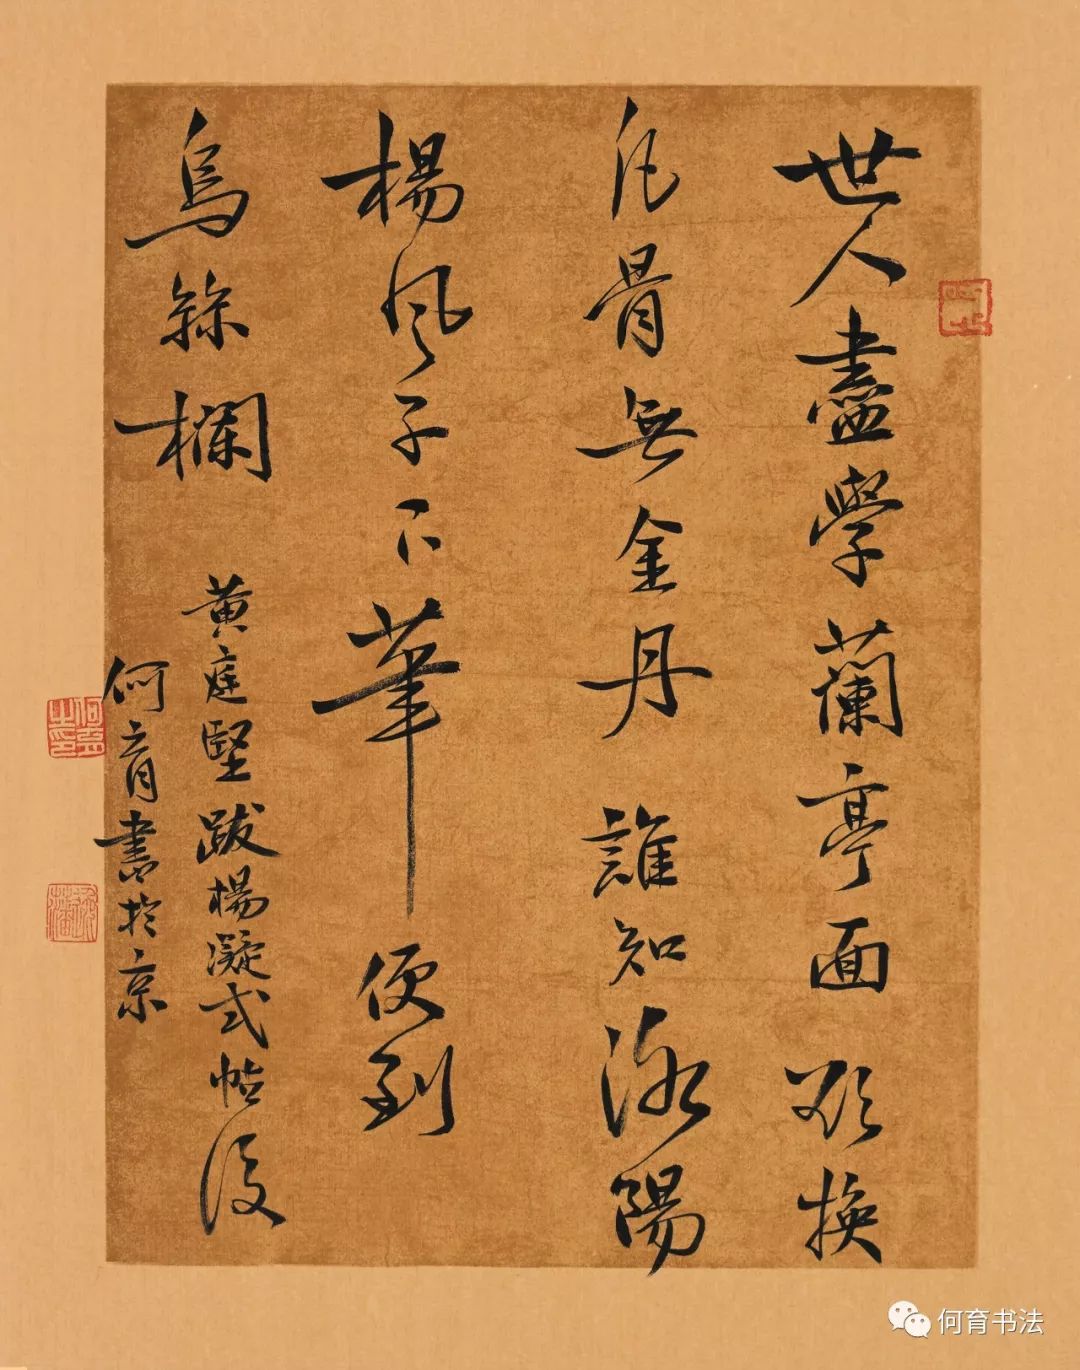 世人盡學蘭亭面欲換
凡骨無金丹誰知洛陽
楊風子下筆便到
烏絲欄
黃庭堅跋楊凝式帖後
何育書於京
何育之印
何育书法